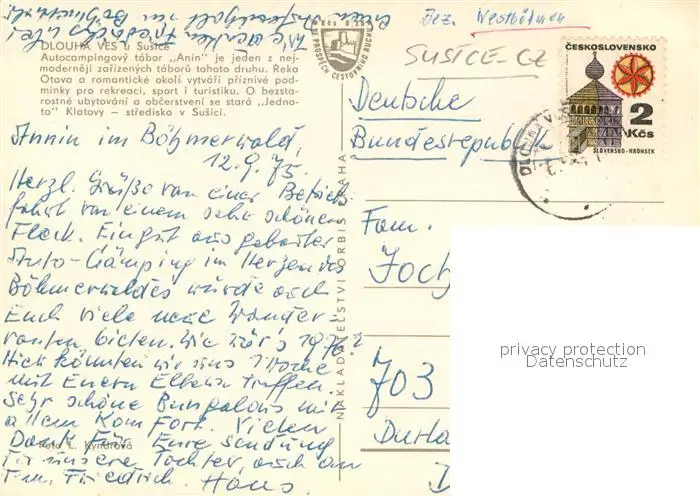 DLOUHÁ VES u Sušice
Autocampingový tábor „Anín" je jeden z nej-
moderněji zařízených táborů tohoto druhu. Řeka
Otava a romantické okolí vytváří příznivé pod-
mínky pro rekreaci, sport i turistiku. O bezsta-
rostné ubytování a občerstvení se stará „Jedno-
ta" Klatovy — středisko v Sušici.
Annin im Böhmerwald,
12.9.75.
Herzl. Grüße von einer Besich
fahrt von einem sehr schönen
Fleck. Ein gut ausgebauter
Auto-Camping im Herzen des
Böhmerwaldes würde auch
Euch viele neue Wander-
routen bieten. Wie wär's 1976?
Hier könnten wir uns 1 Woche
mit Euern Eltern treffen.
Sehr schöne Bungalows mit
allem Komfort. Vielen
Dank für Eure Sendung
für unsere Tochter, auch an
Fam. Friedrich. Hans
Foto L. Kyndrová
NAKLADATELSTVÍ ORBIS PRAHA
VE PROSPĚCH CESTOVNÍHO RUCHU
Bez. Westböhmen
SUŠICE-CZ
ČESKOSLOVENSKO
2
Kčs
SLOVENSKO-HRONSEK
DLOUHÁ V
Deutsche
Bundesrepublik
Fam.
Joch
703
privacy protection
Datenschutz